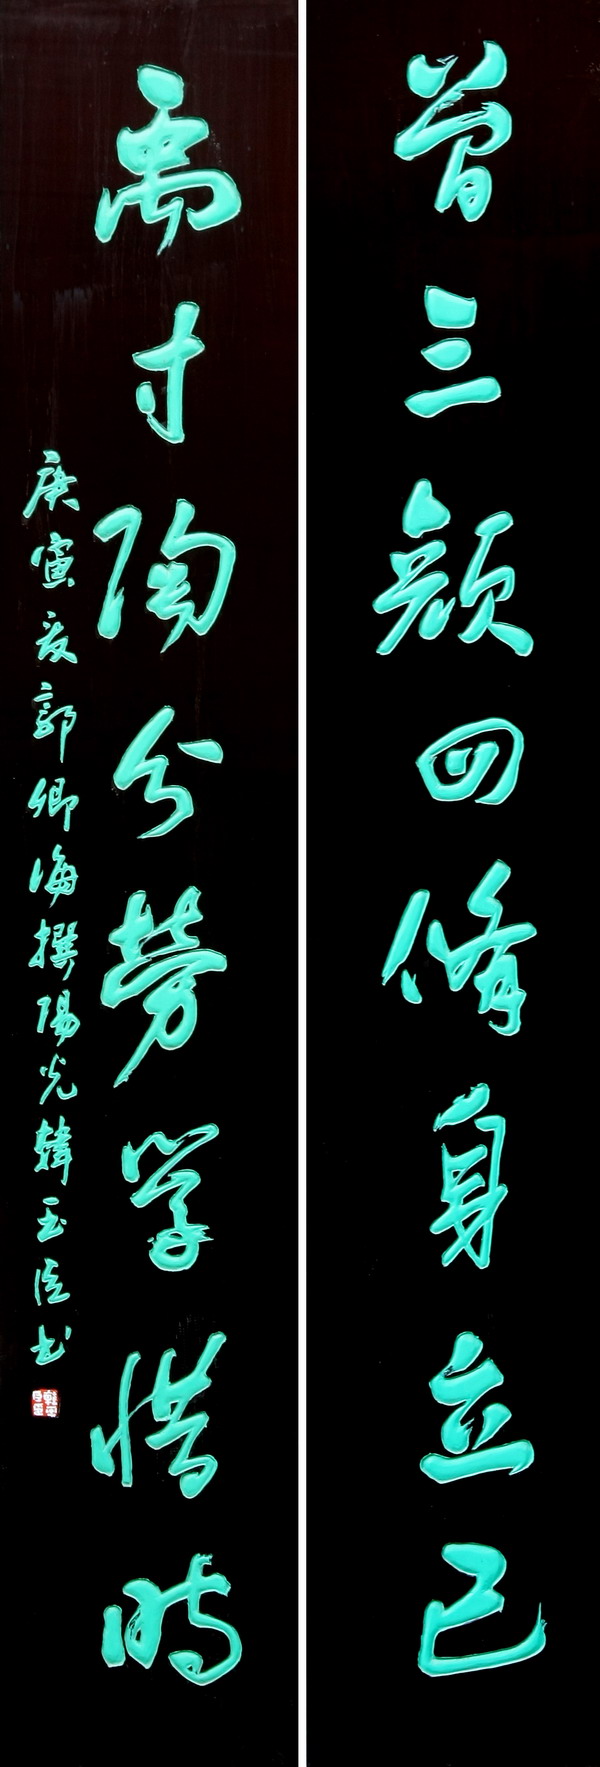 曾三颜四修身立己
禹寸陶分劳学惜时
庚寅夏郭卿海撰阳光韩玉臣书